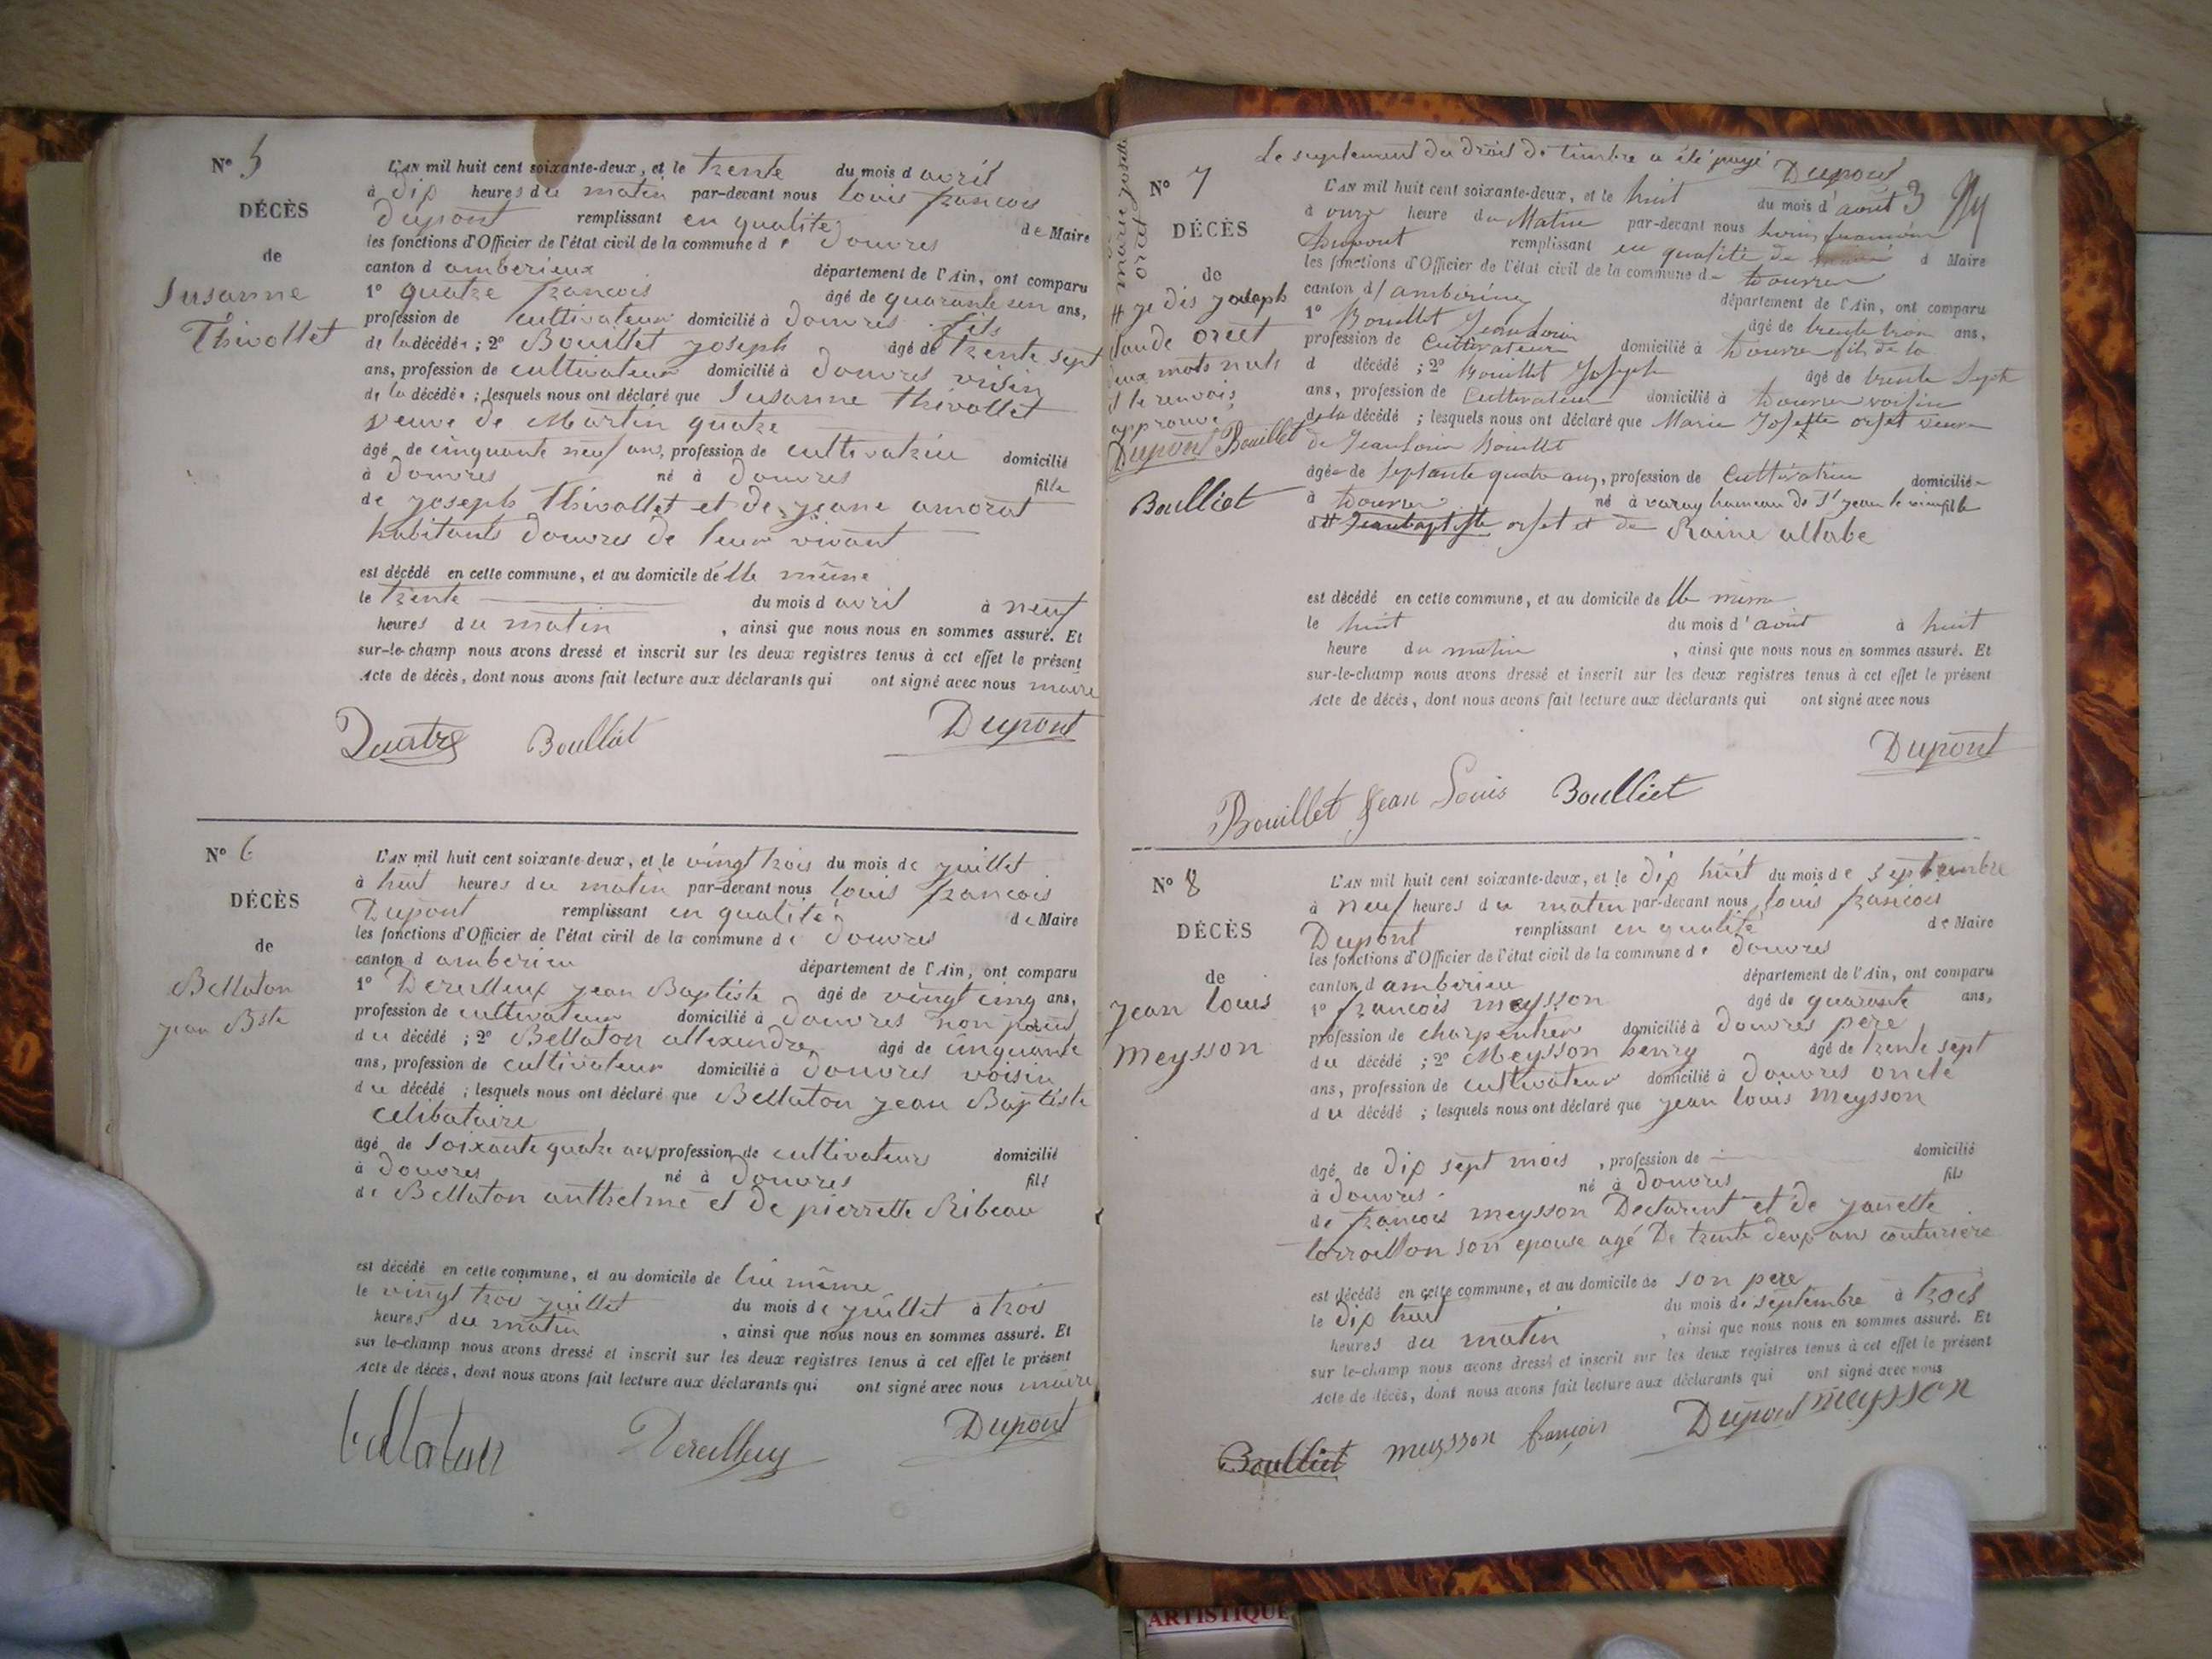 N° 5
DÉCÈS
de
Susanne
Thivollet
L'AN mil huit cent soixante-deux, et le trente du mois d avril
à dix heures du matin par-devant nous louis francois
dupont remplissant en qualité de Maire
les fonctions d'Officier de l'état civil de la commune de douvres
canton d amberieux département de l'Ain, ont comparu
1° quatre francois âgé de quarante un ans,
profession de cultivateur domicilié à douvres fils
de la décédée ; 2° Bouillet joseph âgé de trente sept
ans, profession de cultivateur domicilié à douvres voisin
de la décédée ; lesquels nous ont déclaré que Susanne thivollet
veuve de Martin quatre
âgé de cinquante neuf ans, profession de cultivatrice domicilié
à douvres né à douvres fille
de joseph thivollet et de jeane amorat
habitants douvres de leur vivant
est décédé en cette commune, et au domicile delle même
le trente du mois d avril à neuf
heures du matin , ainsi que nous nous en sommes assuré. Et
sur-le-champ nous avons dressé et inscrit sur les deux registres tenus à cet effet le présent
Acte de décès, dont nous avons fait lecture aux déclarants qui ont signé avec nous maire
Quatre Boulliet Dupont
N° 6
DÉCÈS
de
Bellaton
jean Bste
L'AN mil huit cent soixante-deux, et le vingt trois du mois de juillet
à huit heures du matin par-devant nous louis francois
Dupont remplissant en qualité de Maire
les fonctions d'Officier de l'état civil de la commune de douvres
canton d amberieu département de l'Ain, ont comparu
1° Dereilleux jean Baptiste âgé de vingt cinq ans,
profession de cultivateur domicilié à douvres non parent
du décédé ; 2° Bellaton allexendre âgé de cinquante
ans, profession de cultivateur domicilié à douvres voisin
du décédé ; lesquels nous ont déclaré que Bellaton jean Baptiste
celibataire
âgé de soixante quatre ans profession de cultivateur domicilié
à douvres né à douvres fils
de Bellaton anthelme et de pierrette Ribeau
est décédé en cette commune, et au domicile de lui même
le vingt trois juillet du mois de juillet à trois
heures du matin , ainsi que nous nous en sommes assuré. Et
sur le-champ nous avons dressé et inscrit sur les deux registres tenus à cet effet le présent
Acte de décès, dont nous avons fait lecture aux déclarants qui ont signé avec nous maire
bellaton Dereilleux Dupont
Le suplement du droit de timbre a été payé
Dupont
3
N° 7
DÉCÈS
de
marie josette
orcet
# joseph
claude orcet
deux mots nuls
et le renvois
approuvé
Dupont Bouillet
Boulliet
L'AN mil huit cent soixante-deux, et le huit du mois d'août
à onze heure du Matin par-devant nous Louis francois
Dupont remplissant en qualité de d Maire
les fonctions d'Officier de l'état civil de la commune de Douvres
canton d'ambérieu département de l'Ain, ont comparu
1° Bouillet Jean Louis âgé de trente trois ans,
profession de Cultivateur domicilié à Douvres fils de la
d décédé ; 2° Bouillet Joseph âgé de trente Sept
ans, profession de Cultivateur domicilié à Douvres voisin
de la décédé ; lesquels nous ont déclaré que Marie Josette orset veuve
de Jean Louis Bouillet
âgée de septante quatre ans, profession de Cultivatrice domiciliée
à Douvres né à varay hameau de St jean le vieux fille
d # Jean baptiste orset et de Raine allabe
est décédé en cette commune, et au domicile de lle même
le huit du mois d'août à huit
heure du matin , ainsi que nous nous en sommes assuré. Et
sur-le-champ nous avons dressé et inscrit sur les deux registres tenus à cet effet le présent
Acte de décès, dont nous avons fait lecture aux déclarants qui ont signé avec nous
Dupont
Bouillet Jean Louis Boulliet
N° 8
DÉCÈS
de
jean louis
meysson
L'AN mil huit cent soixante-deux, et le dix huit du mois de septembre
à neuf heures du matin par-devant nous louis francois
Dupont remplissant en qualité de Maire
les fonctions d'Officier de l'état civil de la commune de douvres
canton d amberieu département de l'Ain, ont comparu
1° francois meysson âgé de quarante ans,
profession de charpentier domicilié à douvres pere
du décédé ; 2° Meysson henry âgé de trente sept
ans, profession de cultivateur domicilié à douvres oncle
du décédé ; lesquels nous ont déclaré que jean louis meysson
âgé de dix sept mois , profession de domicilié
à douvres né à douvres fils
de francois meysson Declarent et de janette
torroillon son epouse agé De trente deux ans couturiere
est décédé en cette commune, et au domicile de son pere
le dix huit du mois de septembre à trois
heures du matin , ainsi que nous nous en sommes assuré. Et
sur le-champ nous avons dressé et inscrit sur les deux registres tenus à cet effet le présent
Acte de décès, dont nous avons fait lecture aux déclarants qui ont signé avec nous
Boulliet meysson françois Dupont meysson
ARTISTIQUE